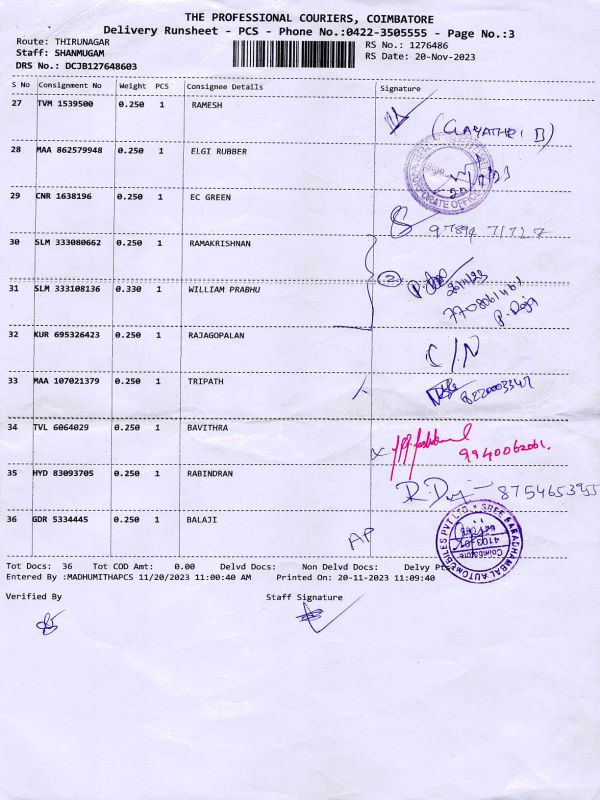 THE PROFESSIONAL COURIERS, COIMBATORE
Delivery Runsheet - PCS - Phone No.:0422-3505555 - Page No.:3
Route: THIRUNAGAR
RS No.: 1276486
Staff: SHANMUGAM
RS Date: 20-Nov-2023
DRS No.: DCJB127648603
S No Consignment No Weight PCS Consignee Details Signature
27 TVM 1539500 0.250 1 RAMESH
(GAYATHRI B)
28 MAA 862579948 0.250 1 ELGI RUBBER
CORPORATE OFFICE
29 CNR 1638196 0.250 1 EC GREEN
97894 71727
30 SLM 333080662 0.250 1 RAMAKRISHNAN
2
31 SLM 333108136 0.330 1 WILLIAM PRABHU
7708061461
P. Raja
32 KUR 695326423 0.250 1 RAJAGOPALAN
C/N
33 MAA 107021379 0.250 1 TRIPATH
8220003347
34 TVL 6064029 0.250 1 BAVITHRA
9940062061.
35 HYD 83093705 0.250 1 RABINDRAN
8754653955
36 GDR 5334445 0.250 1 BALAJI
AP
SREE SARADHAMBAL AUTOMOBILES PVT LTD.
Coimbatore
Tot Docs: 36 Tot COD Amt: 0.00 Delvd Docs: Non Delvd Docs: Delvy Pts
Entered By :MADHUMITHAPCS 11/20/2023 11:00:40 AM Printed On: 20-11-2023 11:09:40
Verified By Staff Signature